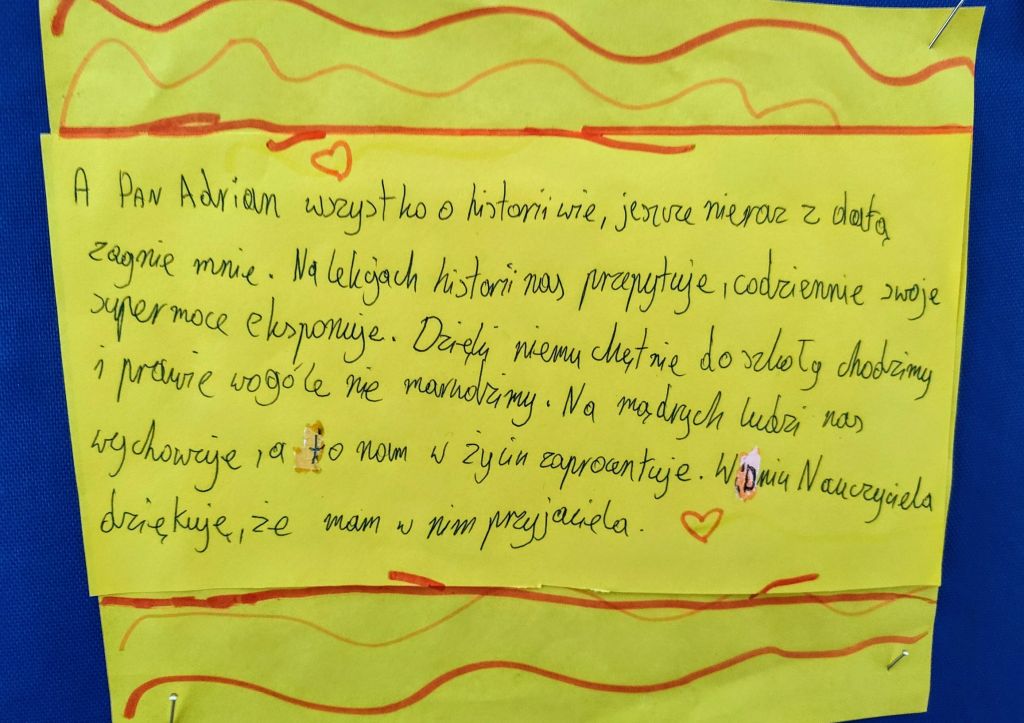 A PAN Adrian wszystko o historii wie, jeszcze nieraz z datą
zagnie mnie. Na lekcjach historii nas przepytuje, codziennie swoje
supermoce eksponuje. Dzięki niemu chętnie do szkoły chodzimy
i prawie wogóle nie marudzimy. Na mądrych ludzi nas
wychowuje, a to nam w życiu zaprocentuje. W Dniu Nauczyciela
dziękuję, że mam w nim przyjaciela.